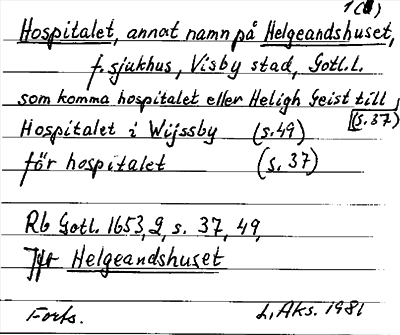 1(1)
Hospitalet, annat namn på Helgeandshuset,
f. sjukhus, Visby stad, Gotl.l.
som komma hospitalet eller Heligh Geist till
(s. 37)
Hospitalet i Wijssby (s. 49)
för hospitalet (s. 37)
Rb Gotl. 1653, 2, s. 37, 49,
Jfr Helgeandshuset
Forts. L, Aks. 1981